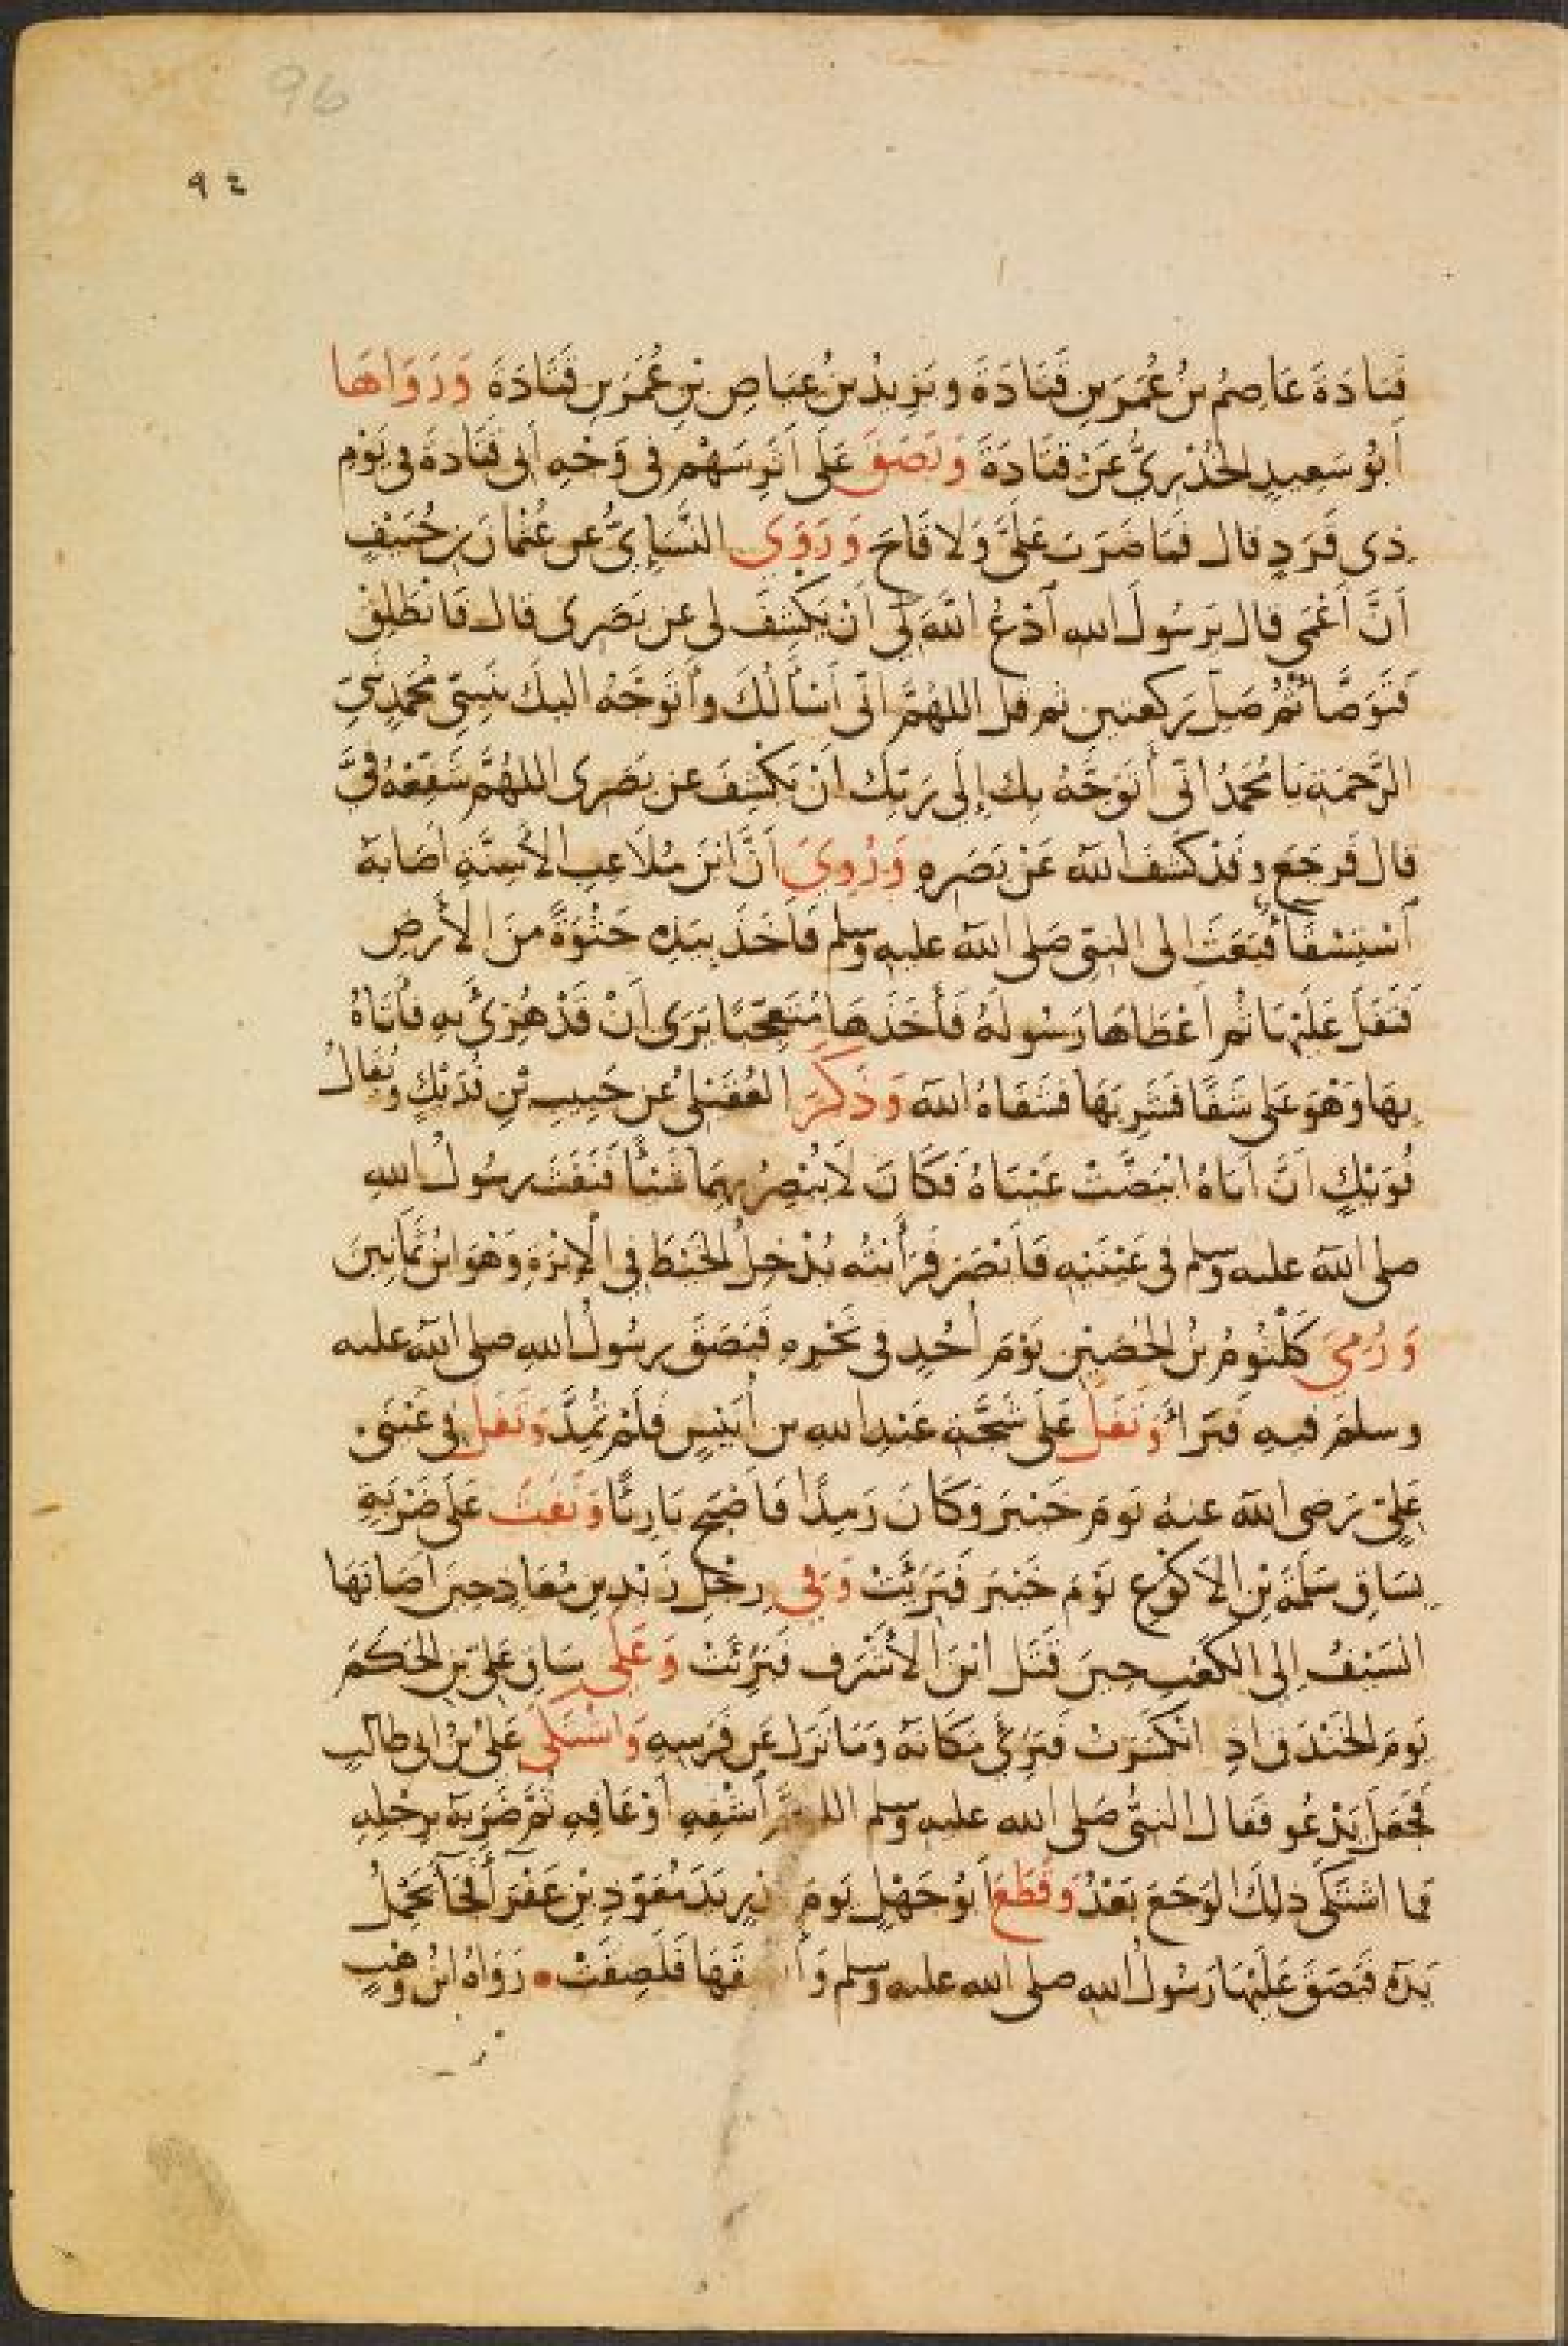 96
٩٤
قَتَادَةَ عَاصِمُ بْنُ عُمَرَ بنِ قَتَادَةَ ويَزِيدُ بنُ عِيَاضِ بْنِ عُمَرَ بنِ قَتَادَةَ وَرَوَاهَا
أَبُو سَعِيدٍ الخُدْرِيُّ عَنْ قَتَادَةَ وَبَصَقَ عَلَى أَثَرِ سَهْمٍ فى وَجْهِ أَبى قَتَادَةَ فى يَوْمِ
ذى قَرَدٍ قال فَمَا ضَرَبَ عَلَىَّ وَلَا قَاحَ وَرَوَى النَّسَاِئىُّ عن عُثْمَانَ بنِ حُنَيْفٍ
اَنَّ أَعْمَى قال يَرَسُولَ الله أدْعُ اللَّهَ لِى اَنْ يَكْشِفَ لى عن بَصَرِى قال فَانْطَلِقْ
فَتَوَضَّأْ ثُمَّ صَلِّ رَكعتين ثم قل اللهُمَّ انّى أَسْأَلُكَ وأَتَوَجَّهُ اليكَ بنَبِيّى مُحَمَّدٍ نَبِىِّ
الرَّحْمَةِ يَا مُحَمَّدُ انّى أَتَوَجَّهُ بِكَ إِلَى رَبِّكَ اَنْ يَكْشِفَ عن بَصَرِى اللهُمَّ شَفِّعْهُ فِىَّ
قال فَرَجَعَ وقَدْ كَشَفَ اللهُ عَنْ بَصَرِهِ وَرُوِىَ اَنَّ ابْنَ مُلَاعِبِ الأَسِنَّةِ أَصَابَهُ
اسْتِسْقَاٌ فَبَعَثَ الى النبىّ صَلى الله عليه وسلم فَأَخَذَ بيَدِهِ حَثْوَةً منَ الأَرْضِ
فَتَفَلَ عَلَيْهَا ثُم أَعْطَاهَا رَسُولَهُ فَأَخَذَهَا مُتَعَجِّبًا يَرَى اَنْ قَدْ هُزِئَ بِهِ فأَتَاهُ
بِهَا وَهْوَ عَلى شَفًا فَشَرِبَهَا فشَفَاهُ الله وَذَكَرَ العُقَيْلىُّ عن حَبِيبِ بْنِ فُدَيْكٍ ويُقَالُ
فُوَيْكٍ اَنَّ أَبَاهُ ابْيَضَّتْ عَيْنَاهُ فَكَانَ لَا يُبْصِرُ بِهِمَا شَيْئًا فَنَفَثَ رسُولُ اللهِ
صلى الله عليه وسلم فى عَيْنَيْهِ فَأَبْصَرَ فَرَأَيْتُه يُدْخِلُ الخَيْطَ فِي الْإِبْرَةِ وَهْوَ ابْنُ ثَمَانِينَ
وَرُمِىَ كُلْثُومُ بْنُ الحُصَيْنِ يَوْمَ أُحُدٍ فى نَحْرِهِ فَبَصَقَ رسُولُ اللهِ صلى الله عليه
وسلمَ فيهِ فَبَرَأَ وَتَفَلَ عَلَى شَجَّةِ عَبْدِ اللهِ بن أُنَيْسٍ فَلَمْ تُمِدَّ وَتَفَلَ فى عَيْنَىْ
عَلِىّ رَضى الله عنهُ يَومَ خَيْبَرَ وَكَانَ رَمِدًا فَأَصْبَحَ بَارِئًا وَنَفَثَ عَلَى ضَرْبَةٍ
بِسَاقِ سَلَمَةَ بْنِ الاَكْوَعِ يَوْمَ خَيْبَرَ فَبَرِئَتْ وَفِى رِجْلِ زَيْدِ بنِ مُعَاذٍ حِينَ أَصَابَهَا
السَيْفُ اِلى الكَعْبِ حِينَ قَتَلَ ابْنَ الأَشْرَفِ فَبَرِئَتْ وَعَلَى سَاقِ عَلِىِّ بْنِ الحَكَمِ
يَومَ الخَنْدَقِ اذِ انْكَسَرَتْ فَبَرِئَ مَكَانَهُ وَمَا نَزَلَ عَن فَرَسِهِ وَاشْتَكَى عَلِىُّ بْنُ ابى طالبٍ
فَجَعَلَ يَدْعُو فَقَالَ النبىُّ صَلى الله عليه وسلم اشْفِهِ أَوْ عَافِهِ ثُمَّ ضَرَبَهُ بِرِجْلِهِ
فما اشْتَكَى ذلِكَ الوَجَعَ بَعْدُ وَقَطَعَ أَبُو جَهْلٍ يَومَ يَدَ مُعَوّذِ بْنِ عَفْرَآَ فَجَآَ يَحْمِلُ
يَدَهُ فَبَصَقَ عَلَيْهَا رَسُولُ اللهِ صلى الله عليه وسلم فَلَصِقَتْ • رَوَاهُ ابْنُ وَهْبٍ